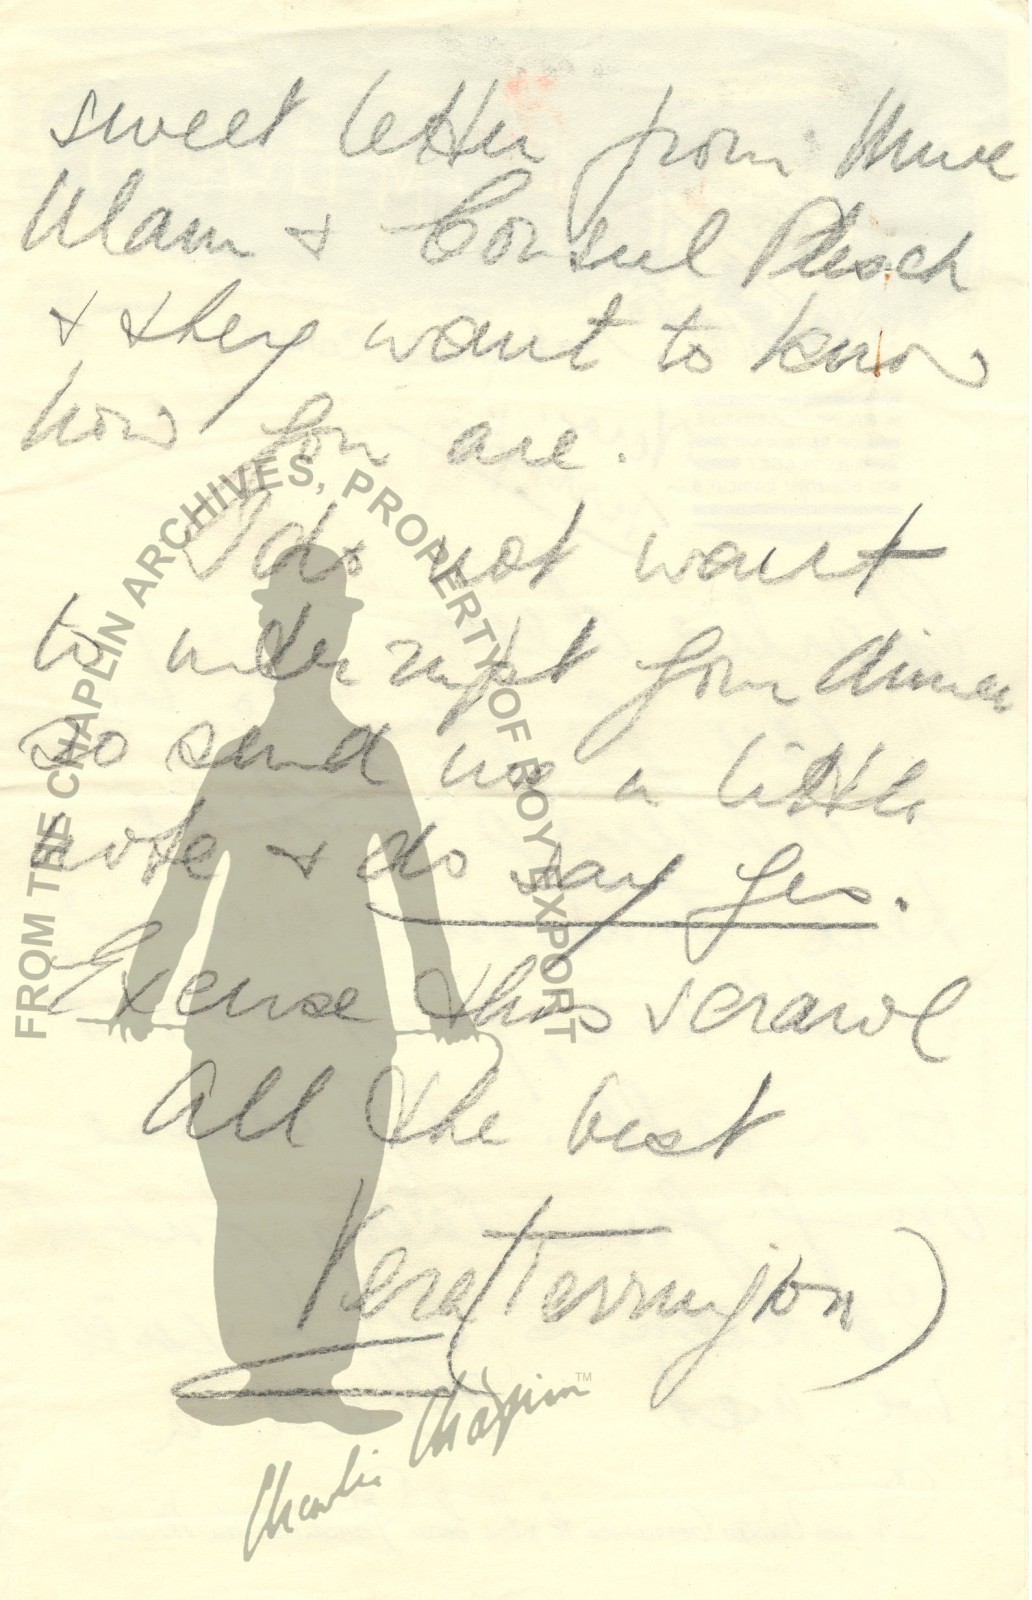 sweet letter from Mme
Ulam & Consul Plesch
& they want to know
how you are.
I do not want
to interrupt your dinner
so send me a little
note & do say yes.
Excuse this scrawl
All the best
Vera (Terrington)
FROM THE CHAPLIN ARCHIVES, PROPERTY OF ROY EXPORT
Charlie Chaplin™